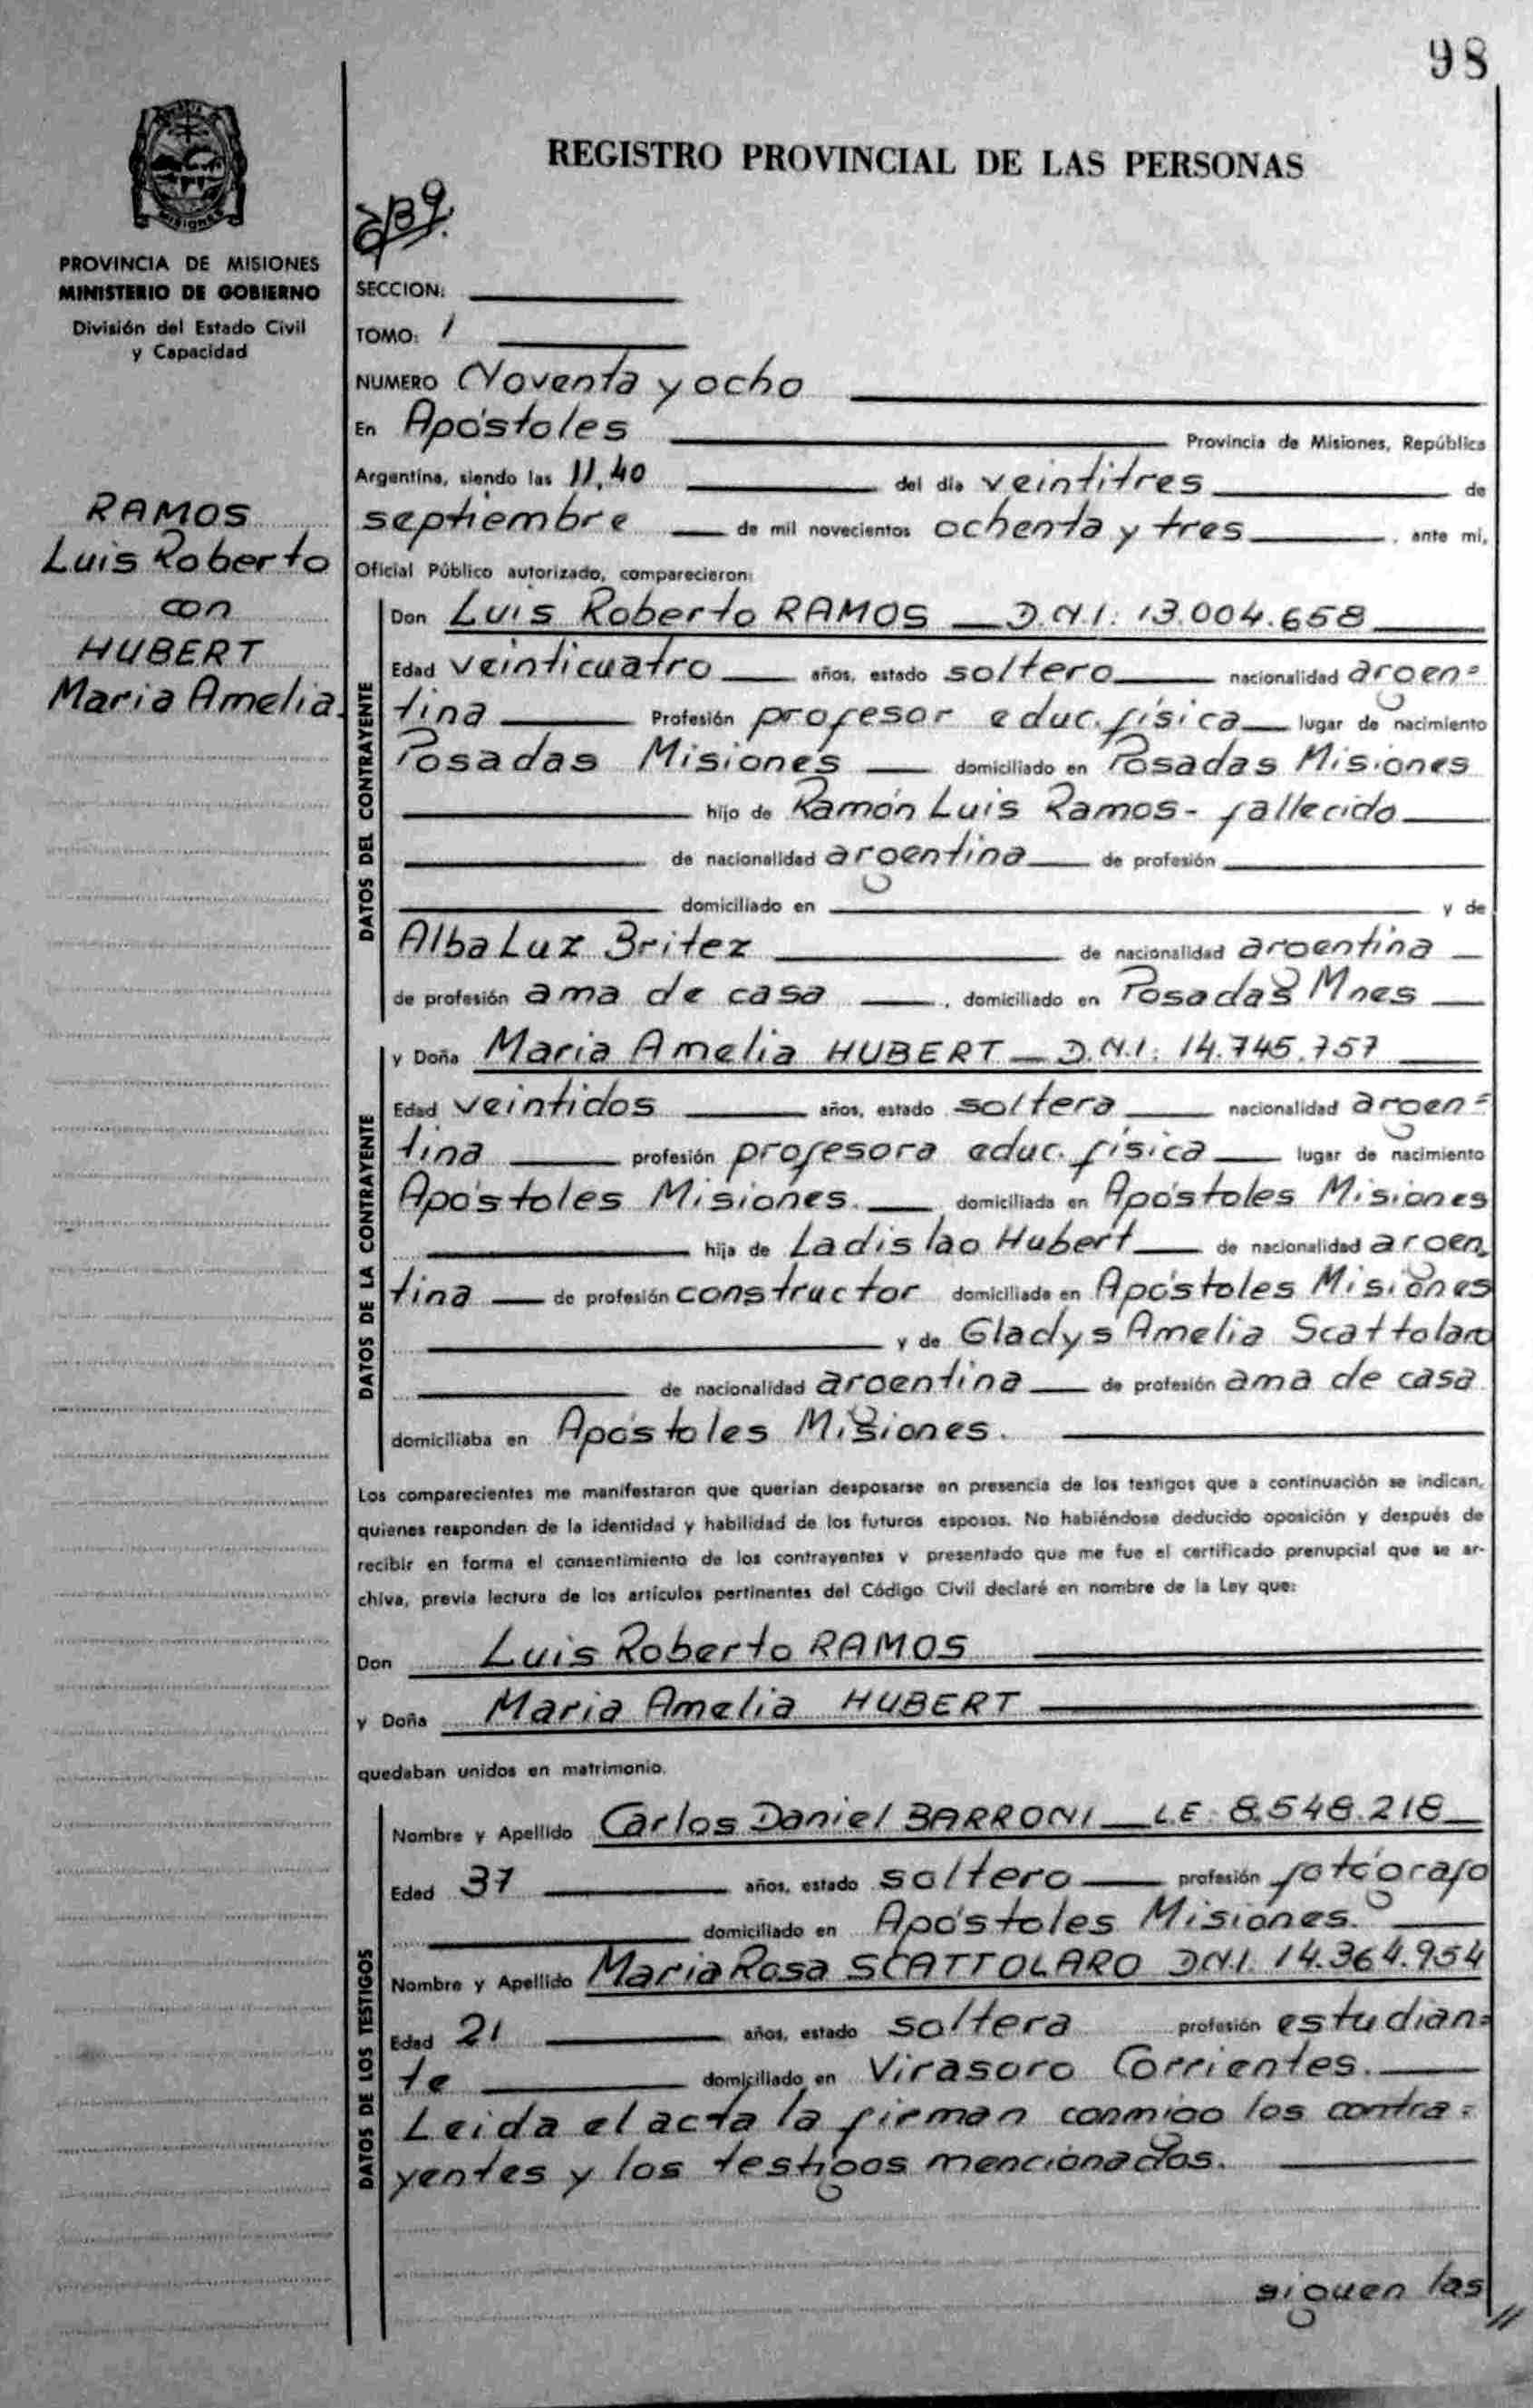 98
REGISTRO PROVINCIAL DE LAS PERSONAS
MISIONES
PROVINCIA DE MISIONES
MINISTERIO DE GOBIERNO
División del Estado Civil
y Capacidad
SECCION:
TOMO: 1
NUMERO Noventa y ocho
En Apóstoles Provincia de Misiones, República
Argentina, siendo las 11,40 del día veintitres de
septiembre de mil novecientos ochenta y tres, ante mi,
Oficial Público autorizado, comparecieron:
RAMOS
Luis Roberto
con
HUBERT
Maria Amelia.
DATOS DEL CONTRAYENTE
Don Luis Roberto RAMOS D.N.I: 13.004.658
Edad veinticuatro años, estado soltero nacionalidad argen=
tina Profesión profesor educ. física lugar de nacimiento
Posadas Misiones domiciliado en Posadas Misiones
hijo de Ramón Luis Ramos - fallecido
de nacionalidad argentina de profesión
domiciliado en y de
Alba Luz Britez de nacionalidad argentina
de profesión ama de casa, domiciliado en Posadas Mnes
DATOS DE LA CONTRAYENTE
y Doña Maria Amelia HUBERT D.N.I: 14.745.757
Edad veintidos años, estado soltera nacionalidad argen=
tina profesión profesora educ. física lugar de nacimiento
Apóstoles Misiones. domiciliada en Apóstoles Misiones
hija de Ladislao Hubert de nacionalidad argen
tina de profesión constructor domiciliado en Apóstoles Misiones
y de Gladys Amelia Scattolaro
de nacionalidad argentina de profesión ama de casa
domiciliaba en Apóstoles Misiones.
Los comparecientes me manifestaron que querían desposarse en presencia de los testigos que a continuación se indican,
quienes responden de la identidad y habilidad de los futuros esposos. No habiéndose deducido oposición y después de
recibir en forma el consentimiento de los contrayentes y presentado que me fue el certificado prenupcial que se ar-
chiva, previa lectura de los artículos pertinentes del Código Civil declaré en nombre de la Ley que:
Don Luis Roberto RAMOS
y Doña Maria Amelia HUBERT
quedaban unidos en matrimonio.
DATOS DE LOS TESTIGOS
Nombre y Apellido Carlos Daniel BARRONI L.E: 8.548.218
Edad 37 años, estado soltero profesión fotógrafo
domiciliado en Apóstoles Misiones.
Nombre y Apellido Maria Rosa SCATTOLARO DNI. 14.364.954
Edad 21 años, estado soltera profesión estudian=
te domiciliado en Virasoro Corrientes.
Leida el acta la firman conmigo los contra=
yentes y los testigos mencionados.
siguen las //